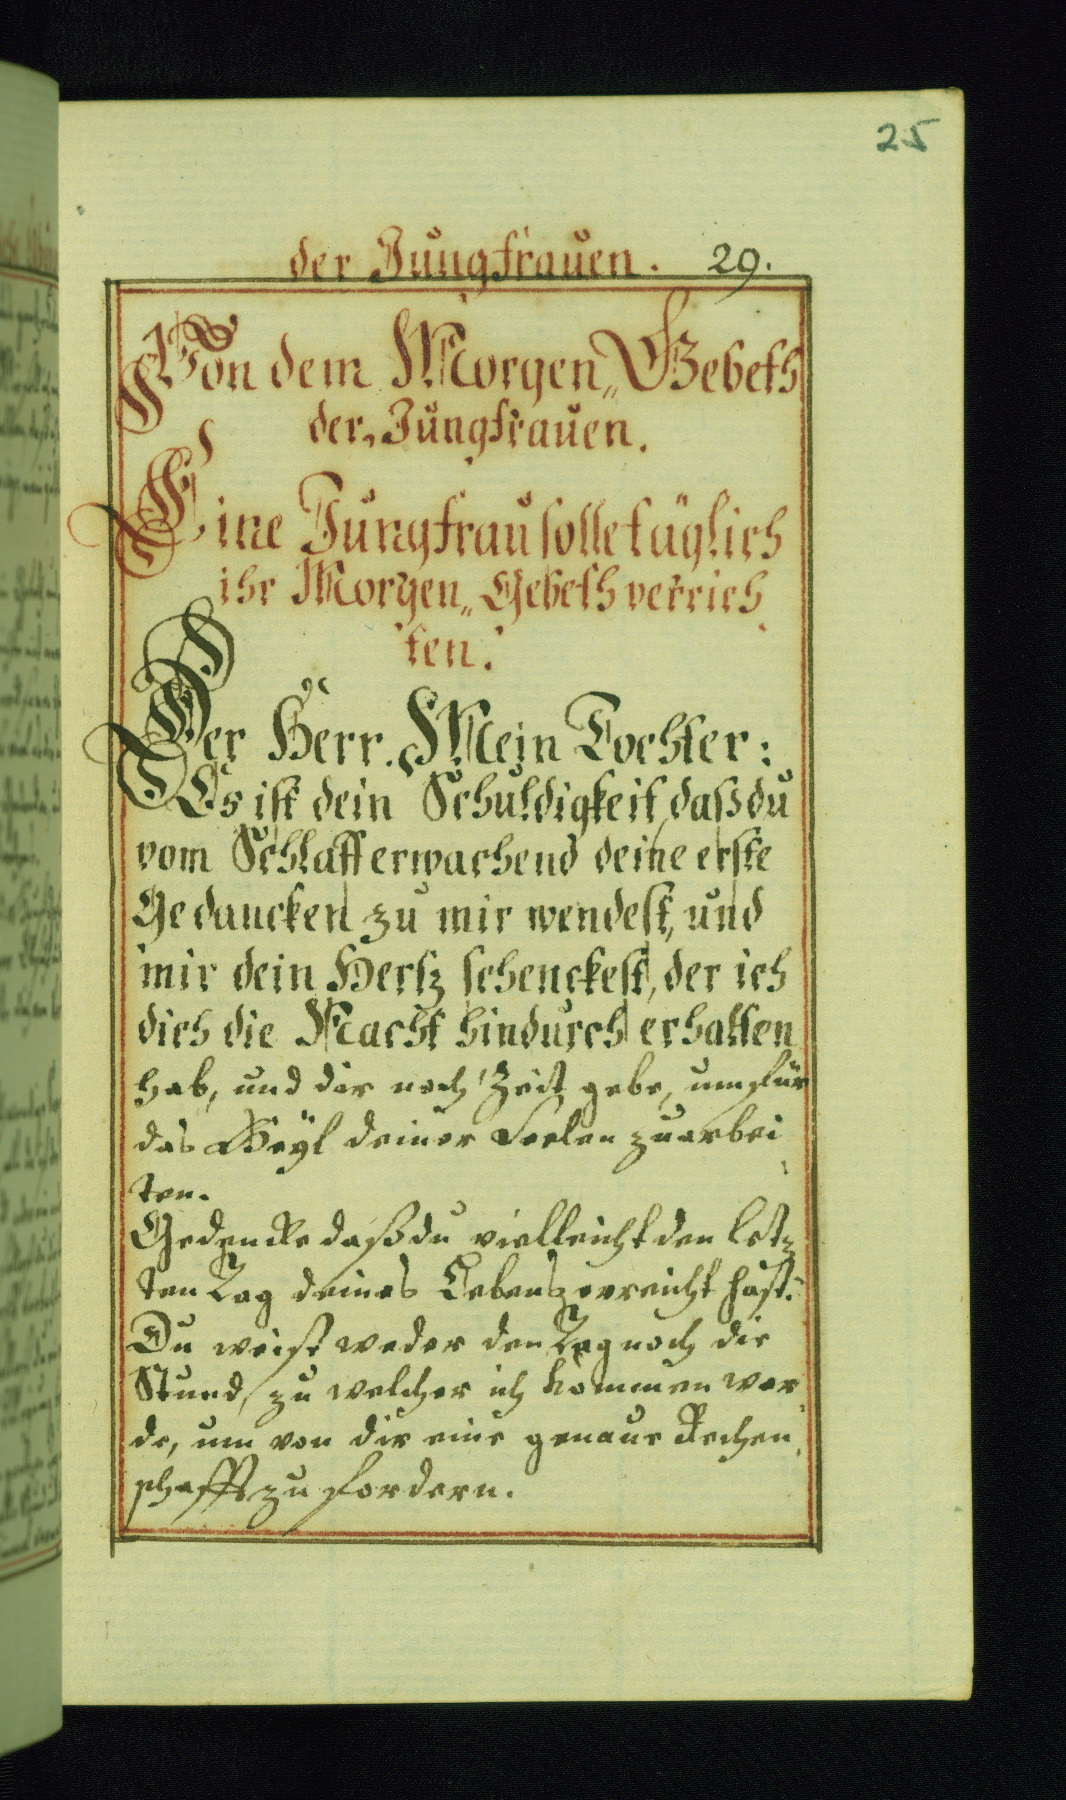 25
der Jungfrauen. 29.
Von dem Morgen„ Gebeth
der Jungfrauen.
Eine Jungfrau solle täglich
ihr Morgen„ Gebeth verrich
ten.
Der Herr. Mein Tochter:
Es ist dein Schuldigkeit, daß du
vom Schlaff erwachend deine erste
Gedancken zu mir wendest, und
mir dein Hertz schenckest, der ich
dich die Nacht hindurch erhalten
hab, und dir noch Zeit gebe, um für
das Heÿl deiner Seelen zuarbei
ten.
Gedencke daß du vielleicht den letz
ten Tag deines Lebens erreicht hast.
Du weist weder den Tag noch die
Stund, zu welcher ich kommen wer
de, um von dir eine genaue Rechen
schafft zu fordern.